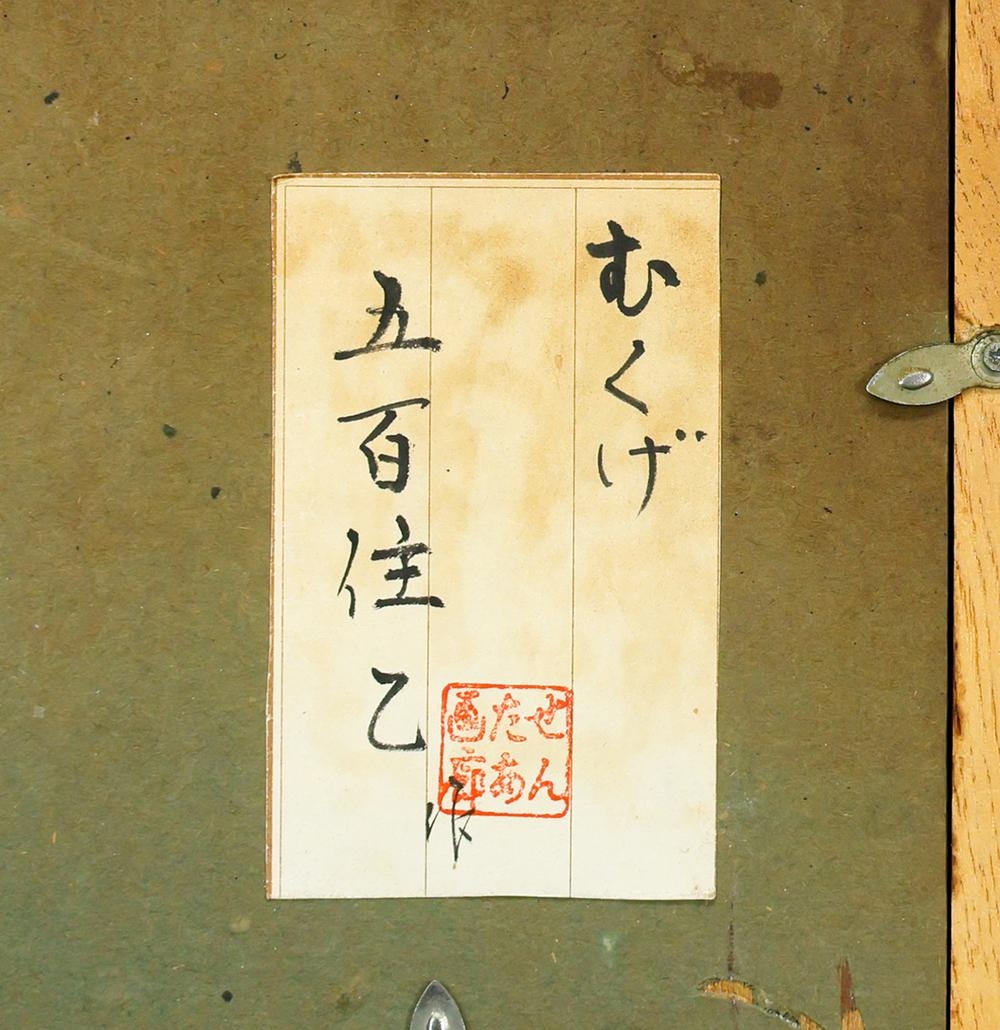 むくげ
五百住乙作
せんたあ画廊